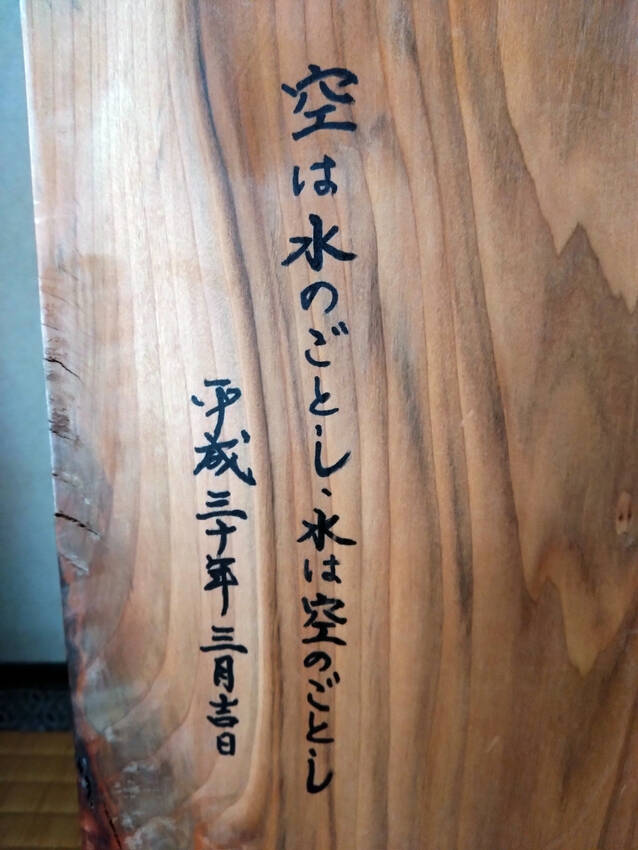 空は水のごとし、水は空のごとし
平成三十年三月吉日